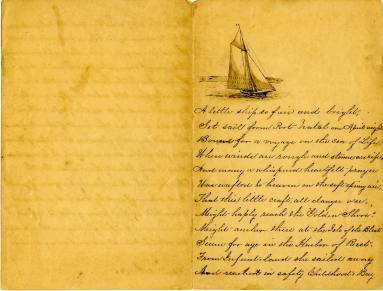 A little ship so fair and bright,
Set sail from Port Natal on April night
Bound for a voyage on the sea of Life
When winds are rough and storms are rife
And many a whispered heartfelt prayer
Was wafted to heaven in the soft spring air
That this little craft, all danger o'er,
Might haply reach the Golden Shore
Might anchor there at the Isle of the Blest
Secure for aye in the Harbor of Rest.
From Infant-land she sailed away
And reached in safety Childhood's Bay